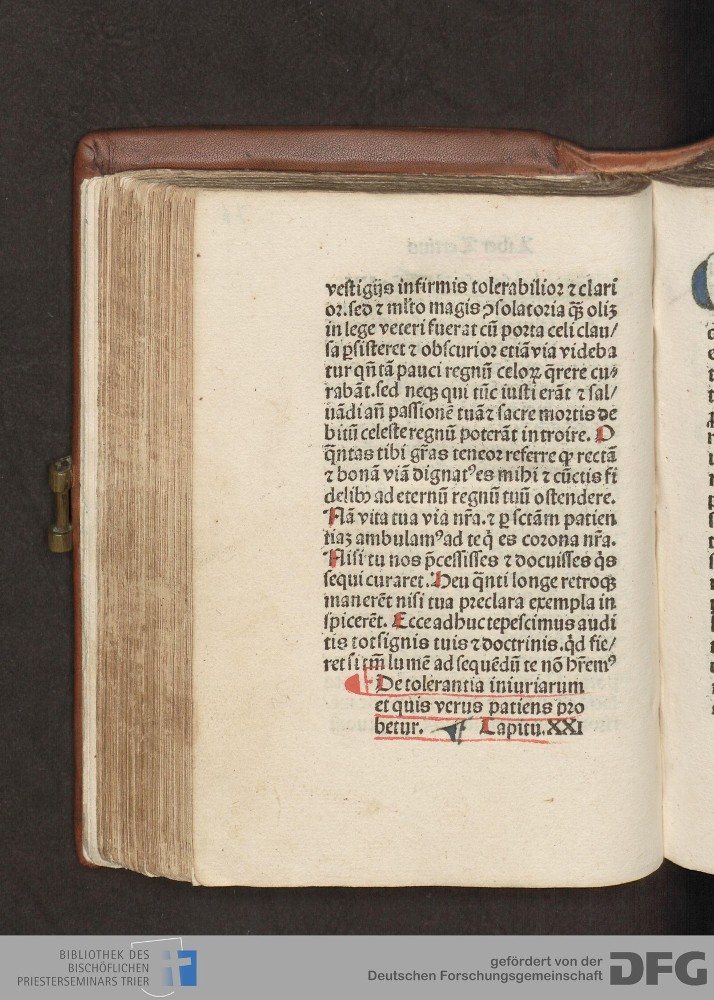 vestigijs infirmis tolerabilior ⁊ clari
or. sed ⁊ ml̅to magis ꝯsolatoria qȝ̃ oliȝ
in lege veteri fuerat cū porta celi clau/
sa p̱sisteret ⁊ obscurior etiā via videba
tur qn̄ tā pauci regnū celoꝝ q̄rere cu/
rabāt. sed neqȝ qui tūc iusti erāt ⁊ sal/
uādi an̄ passionē tuā ⁊ sacre mortis de
bitū celeste regnū poterāt introire. O
q̄ntas tibi gr̄as teneor referre ꝙ rectā
⁊ bonā viā dignatꝰ es mihi ⁊ cūctis fi
delibȝ ad eternū regnū tuū ostendere.
Nā vita tua via nr̄a. ⁊ ꝑ sctām patien
tiaȝ ambulamꝰ ad te q̇ es corona nr̄a.
Nisi tu nos p̄cessisses ⁊ docuisses q̇s
sequi curaret. Heu q̄nti longe retroqȝ
manerēt nisi tua preclara exempla in
spicerēt. Ecce adhuc tepescimus audi
tis tot signis tuis ⁊ doctrinis. qd̓ fie/
ret si tm̄ lumē ad sequēdū te nō hr̄emꝰ
De tolerantia iniuriarum
et quis verus patiens pro
betur. Capitu. XXI
BIBLIOTHEK DES
BISCHÖFLICHEN
PRIESTERSEMINARS TRIER
gefördert von der
Deutschen Forschungsgemeinschaft
DFG